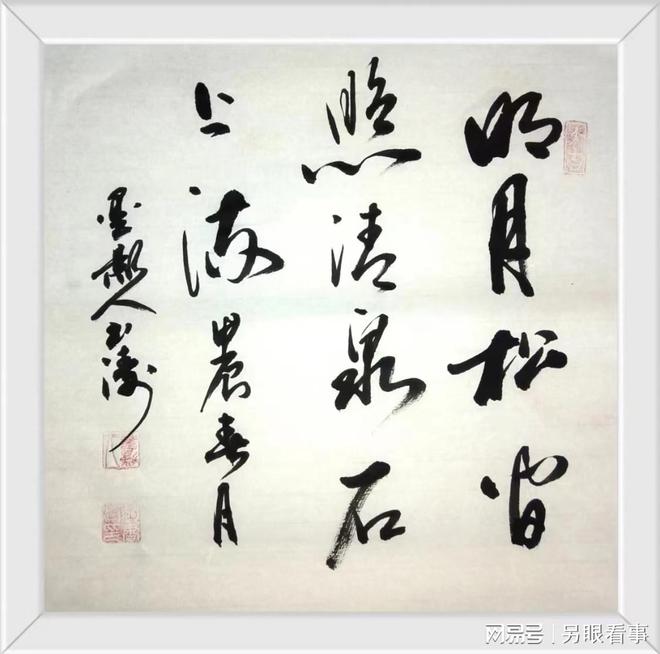 明月松间
照清泉石
上流甲辰春月
墨人
网易号 | 另眼看事